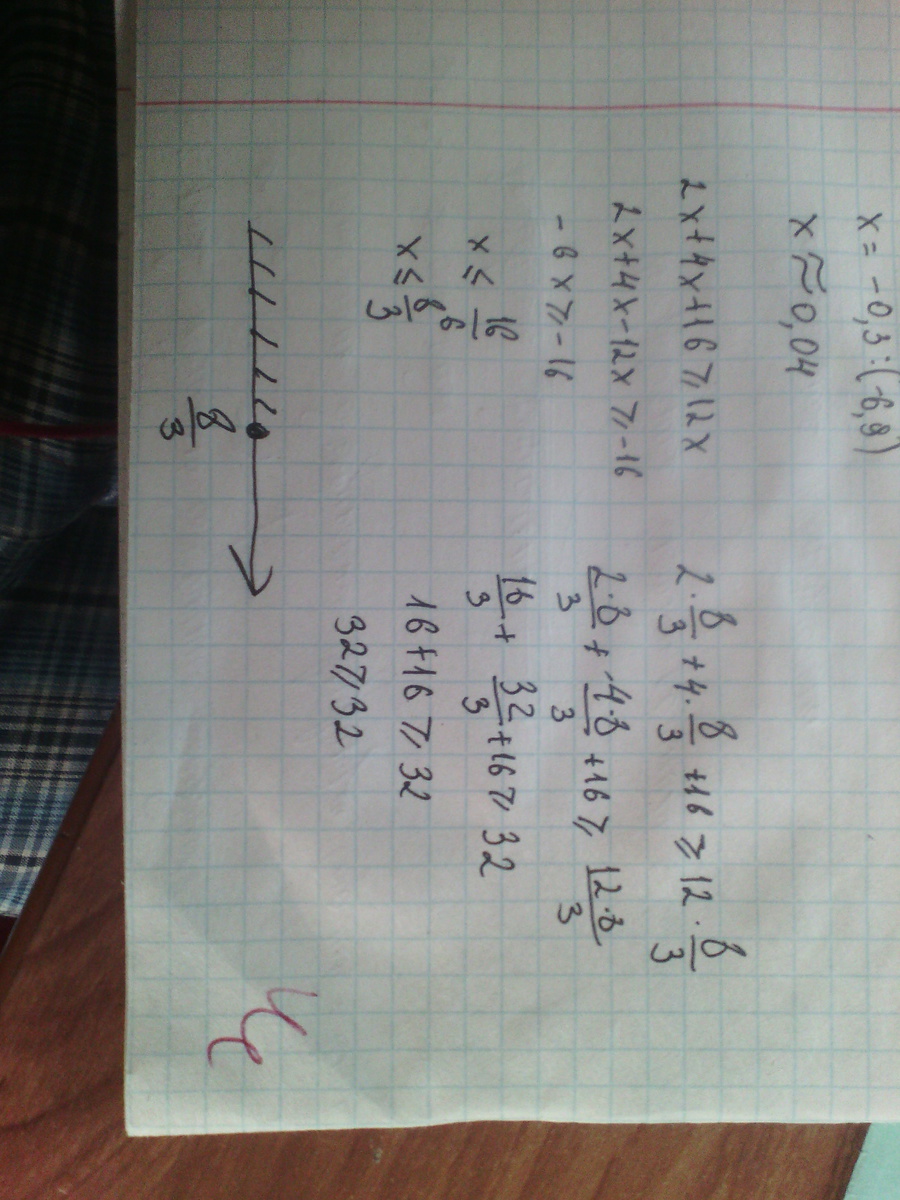 x = -0,3:(-6,9)
x ≈ 0,04
2x+4x+16 ⩾ 12x
2x+4x-12x ⩾ -16
-6x ⩾ -16
x ⩽ 16/6
x ⩽ 8/3
8/3
2·8/3 + 4·8/3 + 16 ⩾ 12·8/3
2·8/3 + 4·8/3 + 16 ⩾ 12·8/3
16/3 + 32/3 + 16 ⩾ 32
16+16 ⩾ 32
32 ⩾ 32